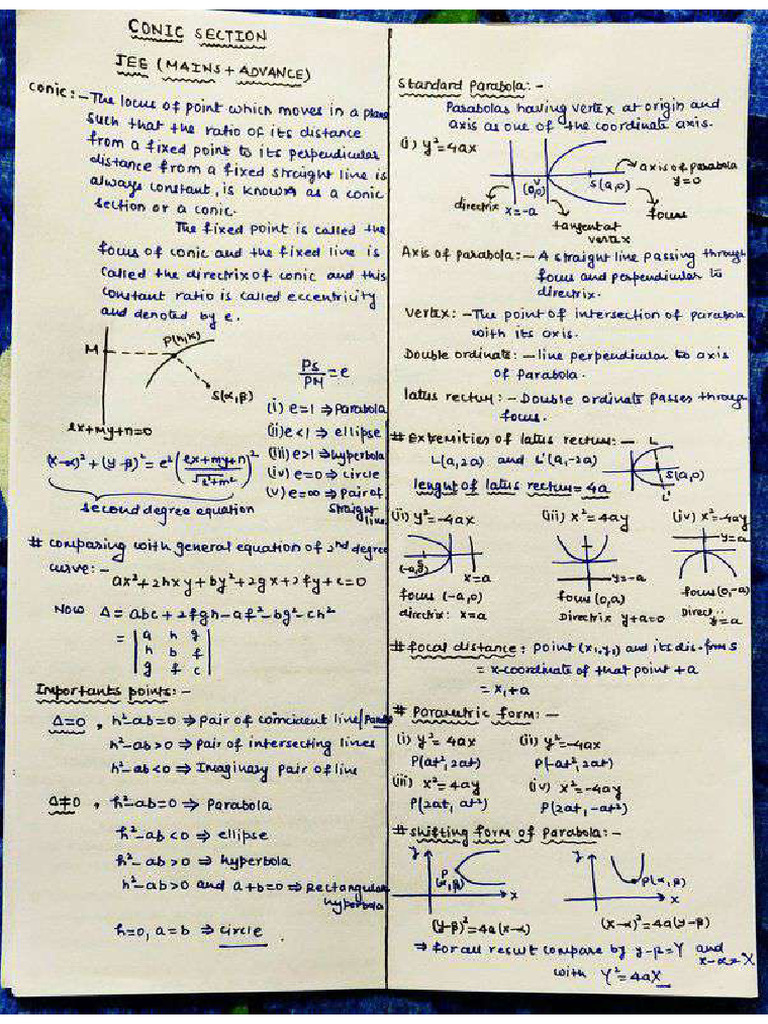 CONIC SECTION
JEE (MAINS + ADVANCE)
Conic:- The locus of point which moves in a plane
such that the ratio of its distance
from a fixed point to its perpendicular
distance from a fixed straight line is
always constant, is known as a conic
section or a conic.
The fixed point is called the
focus of conic and the fixed line is
called the directrix of conic and this
constant ratio is called eccentricity
and denoted by e.
M
S(α,β)
lx+my+n=0
PS/PM = e
(i) e=1 ⇒ Parabola
(ii) e<1 ⇒ ellipse
(iii) e>1 ⇒ hyperbola
(iv) e=0 ⇒ circle
(v) e=∞ ⇒ pair of
straight
line
(x-α)²+(y-β)²= e²(lx+my+n/√l²+m²)²
second degree equation
# comparing with general equation of 2nd degree
curve:-
ax²+2hxy+by²+2gx+2fy+c=0
Now Δ= abc+2fgh-af²-bg²-ch²
= | a h g |
| h b f |
| g f c |
Importants points:-
Δ=0, h²-ab=0 ⇒ pair of coincident line/
h²-ab>0 ⇒ pair of intersecting lines
h²-ab<0 ⇒ Imaginary pair of line
Δ≠0, h²-ab=0 ⇒ Parabola
h²-ab<0 ⇒ ellipse
h²-ab>0 ⇒ hyperbola
h²-ab>0 and a+b=0 ⇒ Rectangular
hyperbola
h=0, a=b ⇒ circle
Standard Parabola:-
Parabolas having vertex at origin and
axis as one of the coordinate axis.
(i) y²=4ax
axis of parabola
y=0
V
(0,0)
S(a,0)
directrix
x=-a
tangent at
vertex
focus
Axis of parabola:- A straight line passing through
focus and perpendicular to
directrix.
Vertex:- The point of intersection of parabola
with its axis.
Double ordinate:- line perpendicular to axis
of parabola.
latus rectum:- Double ordinate passes through
focus.
# Extremities of latus rectum:-
L(a,2a) and L'(a,-2a)
lenght of latus rectum=4a
L
S(a,0)
L'
(ii) y²=-4ax
(iii) x²=4ay
(iv) x²=-4ay
x=a
y=-a
y=a
focus (-a,0)
directrix: x=a
focus (0,a)
Directrix y+a=0
focus (0,-a)
y=a
# focal distance: point (x₁,y₁) and its dis. from S
= x-coordinate of that point + a
= x₁+a
# Parametric form:-
(i) y²=4ax (ii) y²=-4ax
P(at², 2at) P(-at², 2at)
(iii) x²=4ay (iv) x²=-4ay
P(2at, at²) P(2at, -at²)
# shifting form of parabola:-
y
P
(α,β)
x
y
P(α,β)
x
(y-β)²=4a(x-α)
(x-α)²=4a(y-β)
⇒ for all result compare by y-β=Y and
x-α=X
with Y²=4aX